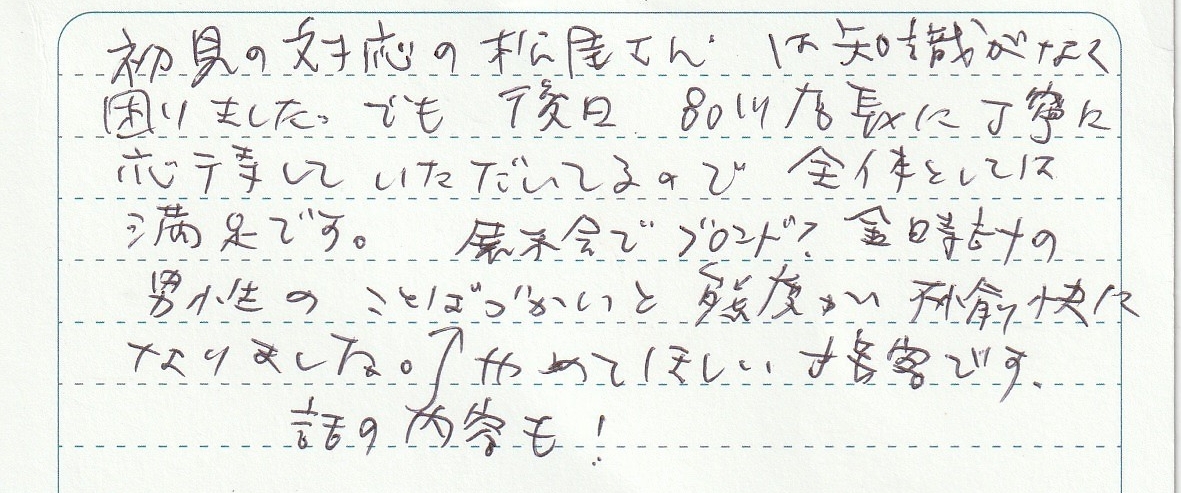 初見の対応の松尾さんは知識がなく
困りました。でも後日 店長に丁寧に
応対していただいてるので全体としては
満足です。 展示会でブロンド？金時計の
男性のことばづかいと態度が不愉快に
なりました。↑やめてほしい接客です。
話の内容も！